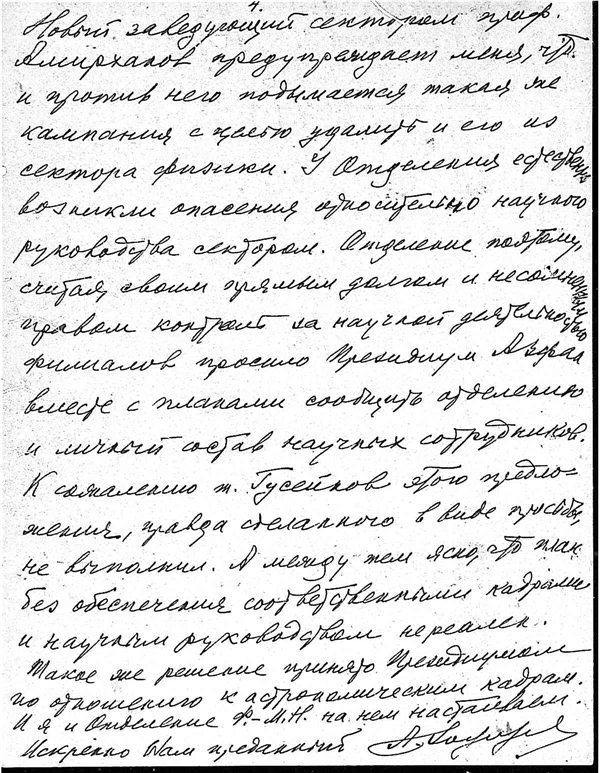 4.
Новый заведующий сектором проф.
Амирханов предупреждает меня, что
и против него подымается такая же
кампания с целью удалить и его из
сектора физики. У Отделения естественно
возникли опасения относительно научного
руководства сектором. Отделение поэтому,
считая своим прямым долгом и несомненным
правом контроль за научной деятельностью
филиалов просило Президиум АзФАН
вместе с планами сообщить отделению
и личный состав научных сотрудников.
К сожалению т. Гусейнов этого предло-
жения, правда сделанного в виде просьбы,
не выполнил. А между тем ясно, что план
без обеспечения соответственными кадрами
и научным руководством нереален.
Такое же решение принято Президиумом
по отношению к астрономическим кадрам.
И я и Отделение Ф.-М.Н. на нем настаиваем.
Искренно Вам преданный